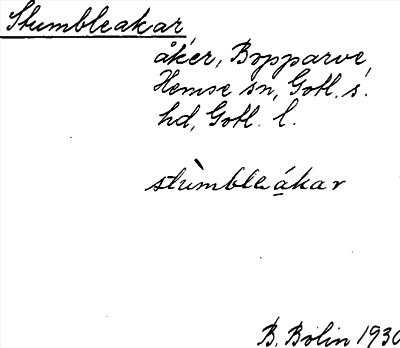 Stumbleakar,
åker, Bopparve,
Hemse sn, Gotl. s.
hd, Gotl. l.
stùmbleákar
B. Bolin 1930